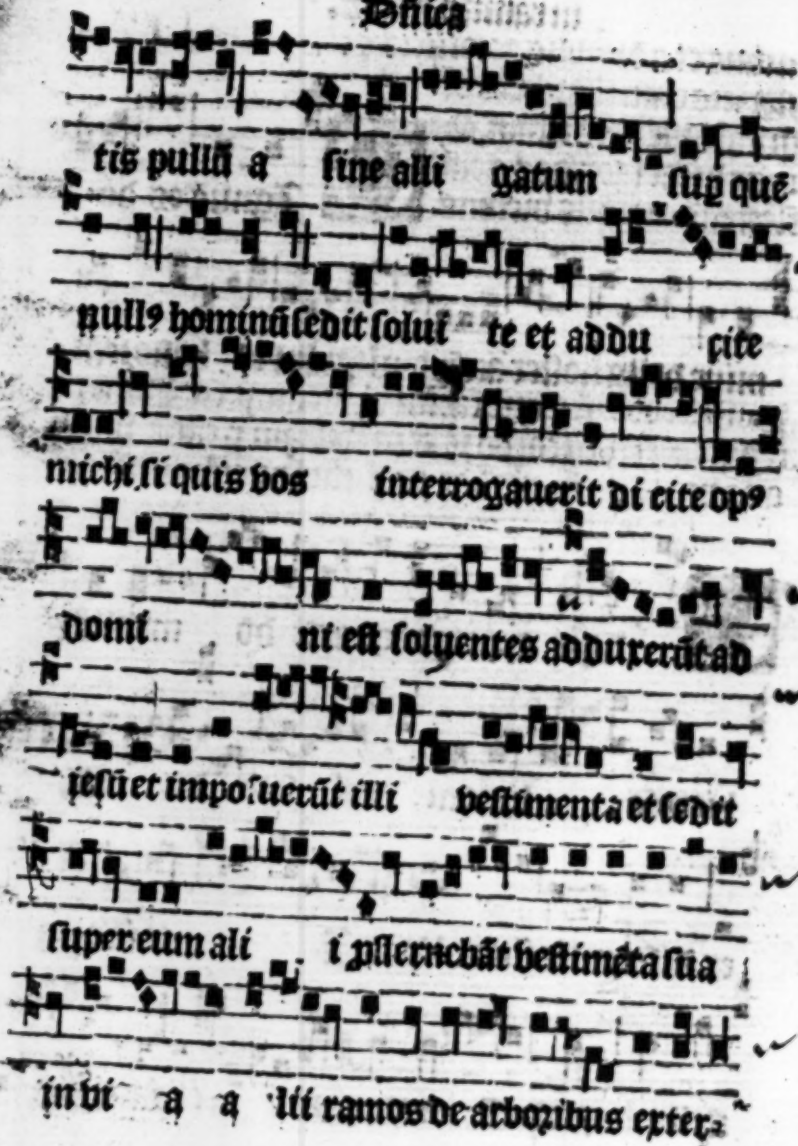 Dñica
tis pullū a sine alli gatum sup quē
null9 hominū sedit solui te et addu cite
michi si quis vos interrogauerit di cite op9
domi ni est soluentes adduxerūt ad
iesū et imposuerūt illi vestimenta et sedit
super eum ali i psternebāt vestimēta sua
in vi a a lii ramos de arboribus exter-